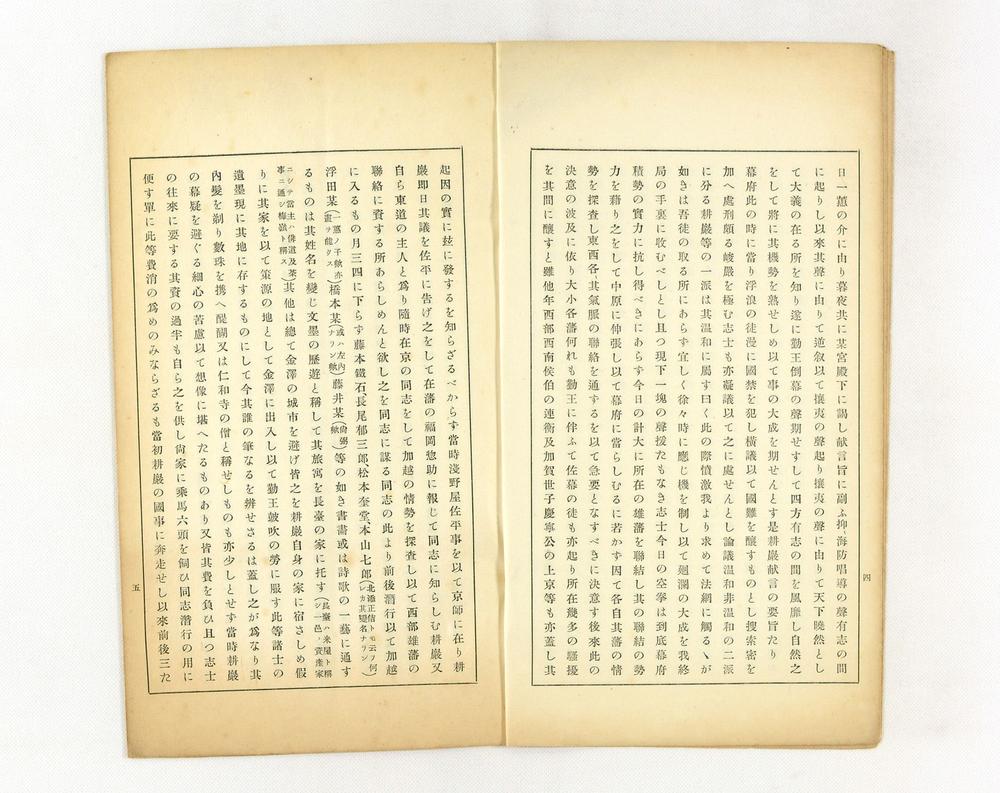 日一薫の介に由り幕夜共に某宮殿下に謁し献言旨に副ふ抑海防唱導の聲有志の間
に起りし以來其聲に由りて道叙以て攘夷の聲起り攘夷の聲に由りて天下曉然とし
て大義の在る所を知り遂に勤王倒幕の聲期せすして四方有志の間を風靡し自然之
をして將に其機勢を熟せしめ以て事の大成を期せんとす是耕巖献言の要旨たり
幕府此の時に當り浮浪の徒漫に國禁を犯し橫議以て國難を釀すものとし搜索密を
加へ處刑頗る峻嚴を極む志士も亦凝議以て之に處せんとし論議温和非温和の二派
に分る耕巖等の一派は其温和に属す曰く此の際憤激我より求めて法網に觸るゝが
如きは吾徒の取る所にあらす宜しく徐々時に應じ機を制し以て廻瀾の大成を我終
局の手裏に收むべしとし且つ現下一塊の聲援たもなき志士今日の空拳は到底幕府
積勢の實力に抗し得べきにあらす今日の計大に所在の雄藩を聯結し其の聯結の勢
力を藉り之をして中原に伸張し以て幕府に當らしむるに若かす因て各自其藩の情
勢を探査し東西各、其氣脈の聯絡を通するを以て急要となすべきに決意す後來此の
決意の波及に依り大小各藩何れも勤王に伴ふて佐幕の徒も亦起り所在幾多の騷擾
を其間に釀すと雖他年西部西南侯伯の連衡及加賀世子慶寧公の上京等も亦蓋し其
四
起因の實に玆に發するを知らざるべからす當時淺野屋佐平事を以て京師に在り耕
巖即日其議を佐平に告げ之をして在藩の福岡惣助に報じて同志に知らしむ耕巖又
自ら東道の主人と爲り隨時在京の同志をして加越の情勢を探査し以て西部雄藩の
聯絡に資する所あらしめんと欲し之を同志に謀る同志の此より前後潛行以て加越
に入るもの月三四に下らす藤本鐵石、長尾郁三郎、松本奎堂、本山七郎(北添正佶トモ云フ何レカ其變名ナリン)
浮田某(一蕙ノ子歟亦畫ヲ能クス)橋本某(或ハ左內ナリン歟)藤井某(尙弼歟)等の如き書畵或は詩歌の一藝に通す
るものは其姓名を變じ文墨の歷遊と稱して其旅寓を長臺の家に托す(長臺ハ米屋ト稱シ一邑ノ資產家
ニシテ當主ハ俳道及茶事ニ通シ梅嶺ト稱ス)其他は總て金澤の城市を避げ皆之を耕巖自身の家に宿さしめ假
りに其家を以て策源の地として金澤に出入し以て勤王鼓吹の勞に服す此等諸士の
遺墨現に其地に存するものにして今其誰の筆なるを辨せさるは蓋し之が爲なり其
內髮を剃り數珠を携へ醍醐又は仁和寺の僧と稱せしものも亦少しとせす當時耕巖
の幕疑を避ぐる細心の苦慮以て想像に堪へたるものあり又皆其費を負ひ且つ志士
の往來に要する其資の過半も自ら之を供し尙家に乘馬六頭を飼ひ同志潛行の用に
便す單に此等費消の爲めのみならざるも當初耕巖の國事に奔走せし以來前後三た
五